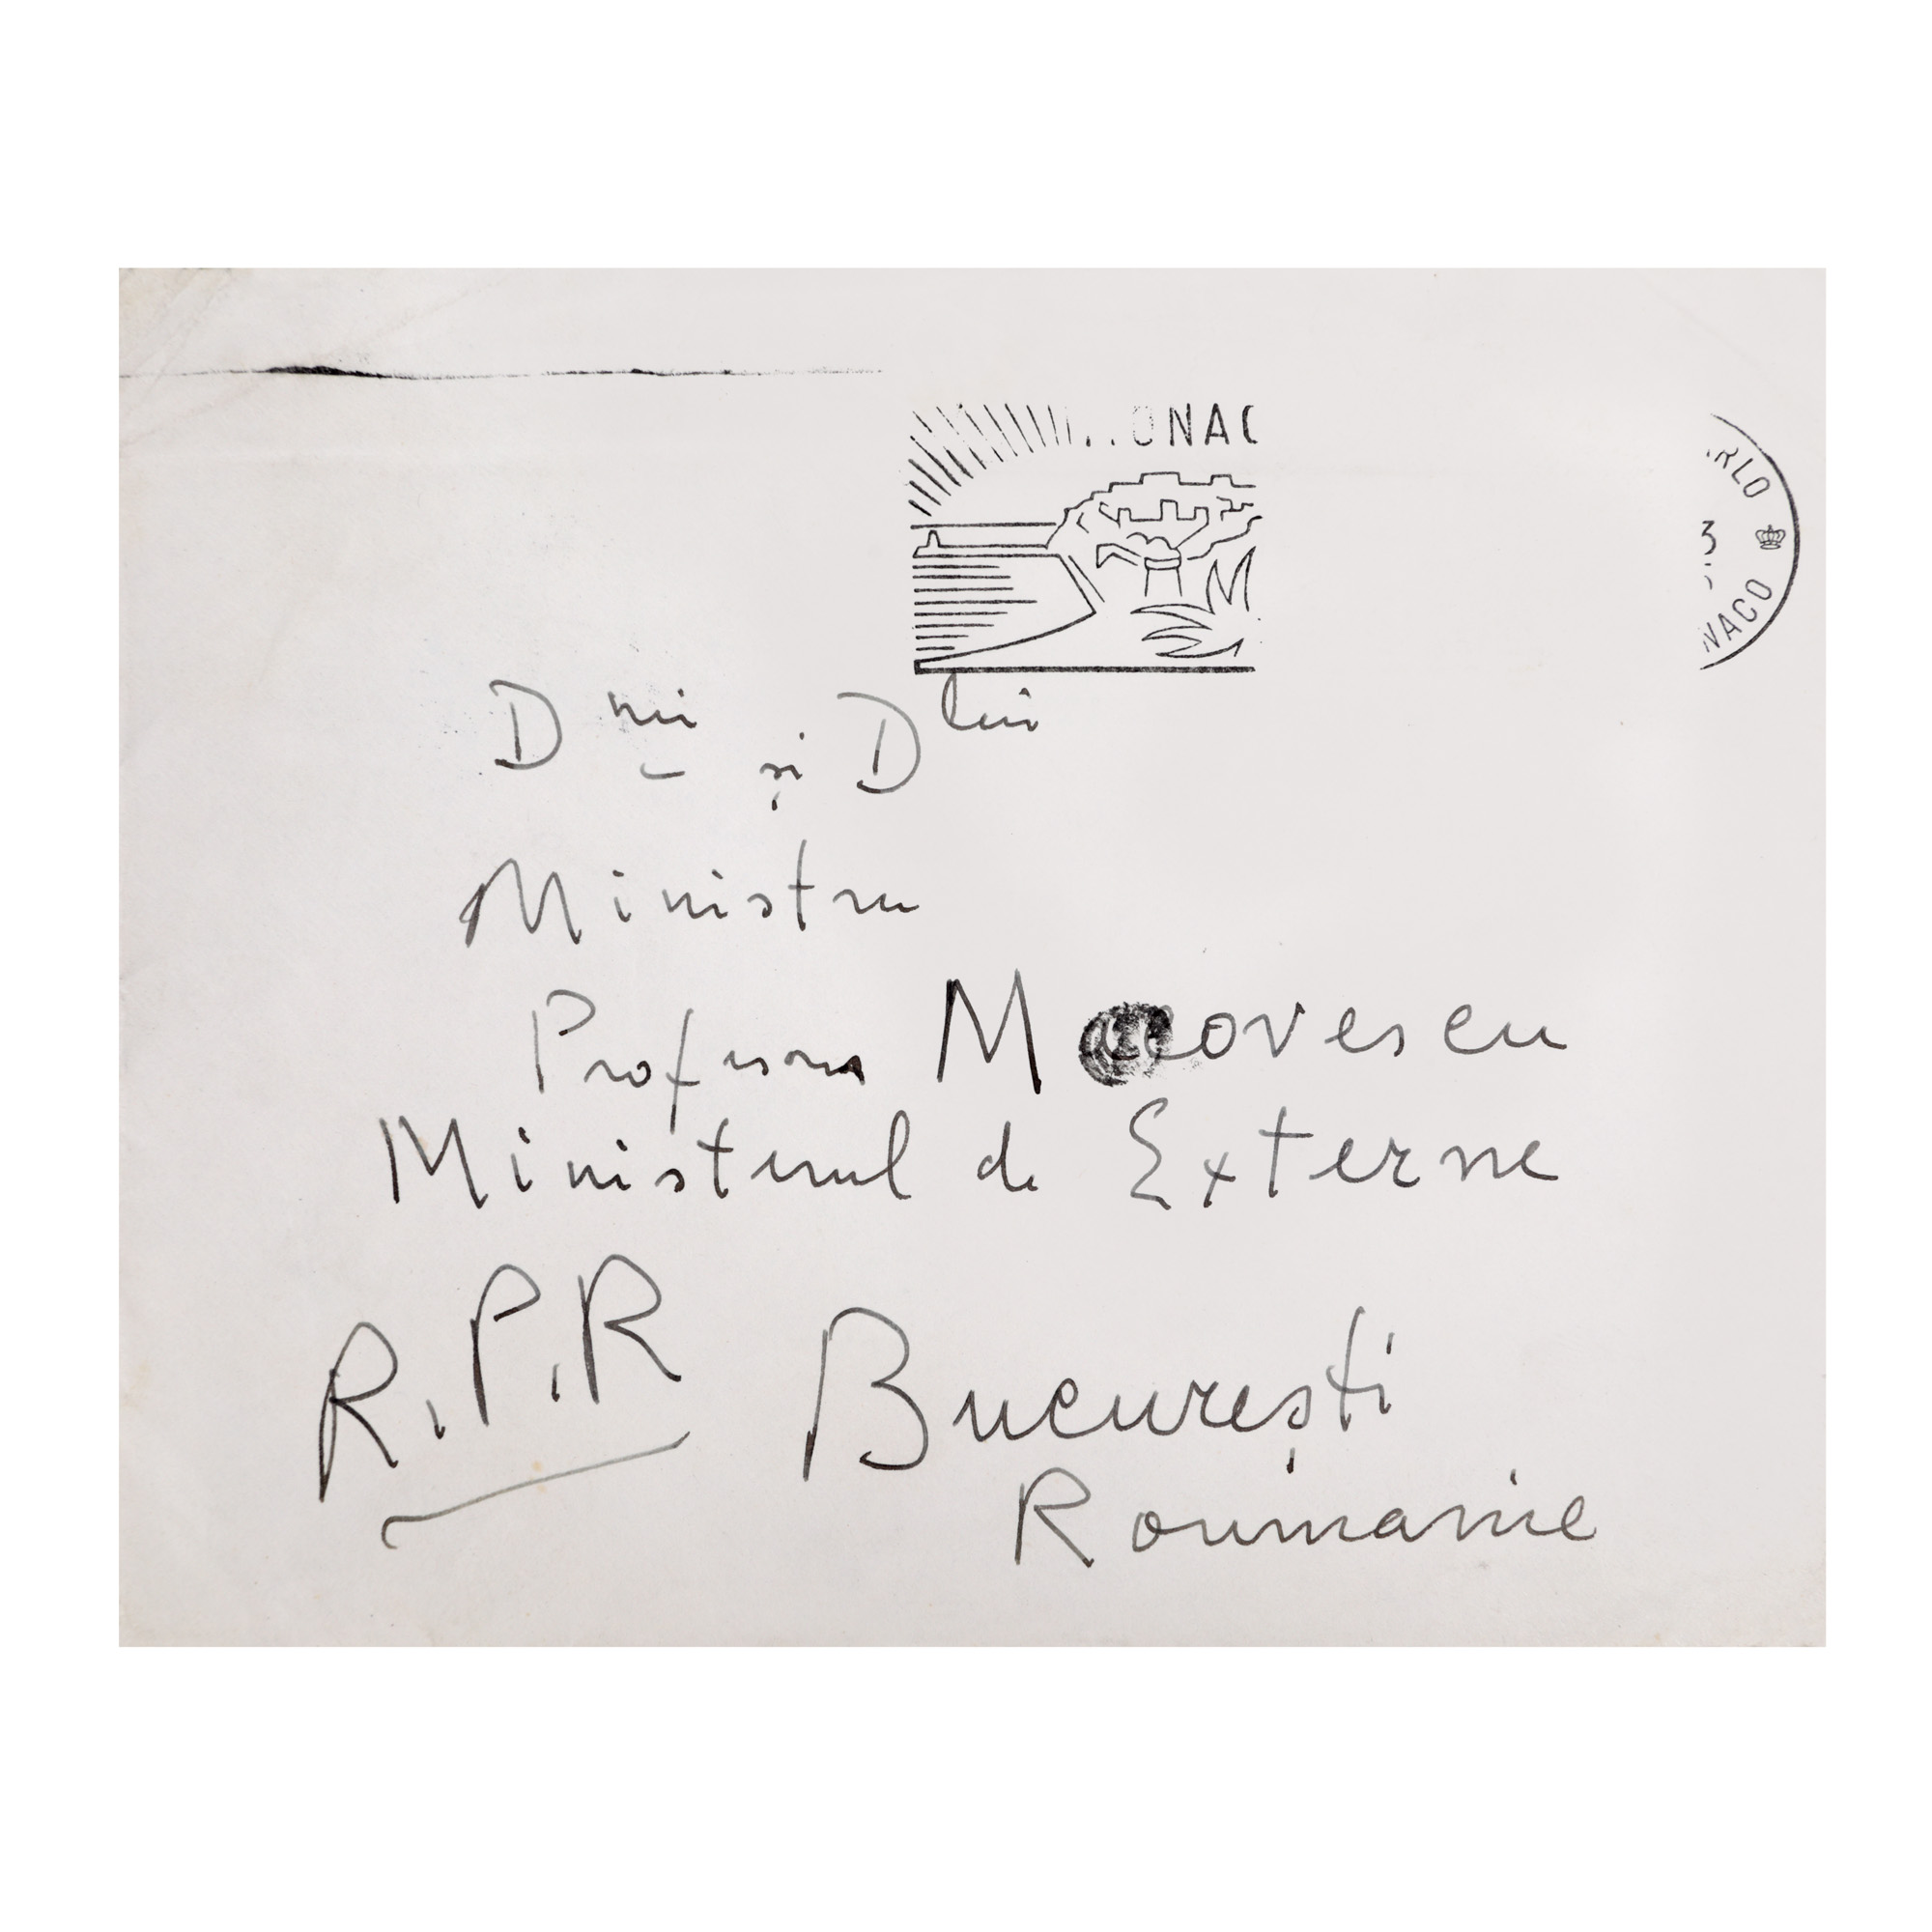 ONAC
RLO
3
NACO
Dnei și Dlui
Ministru
Profesor Macovescu
Ministerul de Externe
R.P.R București
Roumanie